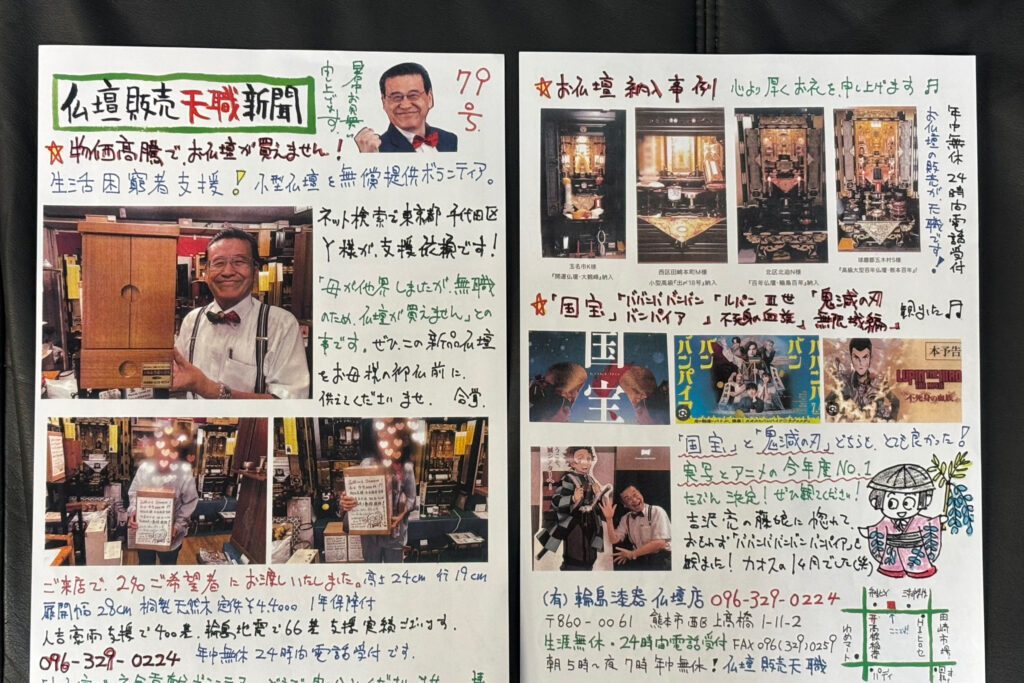 仏壇販売天職新聞
暑中お見舞い
申し上げます。
79
号
☆物価高騰でお仏壇が買えません!
生活困窮者支援!小型仏壇を無償提供ボランティア。
ネット検索で東京都千代田区
Y様が、支援依頼です!
「母が他界しましたが、無職
のため、仏壇が買えません」との
事です。ぜひ、この新品仏壇
をお母様の御仏前に
供えてくださいませ。合掌
ご来店で、2名ご希望者にお渡しいたしました。高さ24cm 行19cm
扉開幅28cm 桐製天然木 定価¥44000 1年保障付
人吉豪雨支援で400基、輪島地震で66基支援実績ございます。
096-329-0224 年中無休24時間電話受付です。
☆お仏壇納入事例 心より厚くお礼を申し上げます♬
年中無休24時間電話受付
お仏壇の販売が、天職です!
玉名市K様
「開運仏壇・大鶴峰」納入
西区田崎本町M様
小型高級「出が18号」納入
北区北迫N様
「百年仏壇・輪島百年」納入
球磨郡五木村S様
「高級大型百年仏壇・熊本百年」
☆「国宝」「ババンババンバン
バンパイア」
「ルパン三世
不死身の血族」
「鬼滅の刃
無限城編」
観ました♬
国宝
バンパイア
バン
本予告
LUPIN THE IIIRD
"不死身の血族"
「国宝」と「鬼滅の刃」どちらも、とても良かった!
実写とアニメの今年度No.1
たぶん決定!ぜひ観てください!
吉沢亮の藤娘に惚れて、
おもわず「ババンババンバンバンパイア」も
観ました!カオスの1ヶ月でした(笑)
(有)輪島漆器仏壇店 096-329-0224
〒860-0061 熊本市西区上高橋1-11-2
生涯無休・24時間電話受付 FAX 096(329)0259
朝5時~夜7時 年中無休!仏壇販売天職
ここだヨ
高橋稲荷
田崎市場
ゆめマート